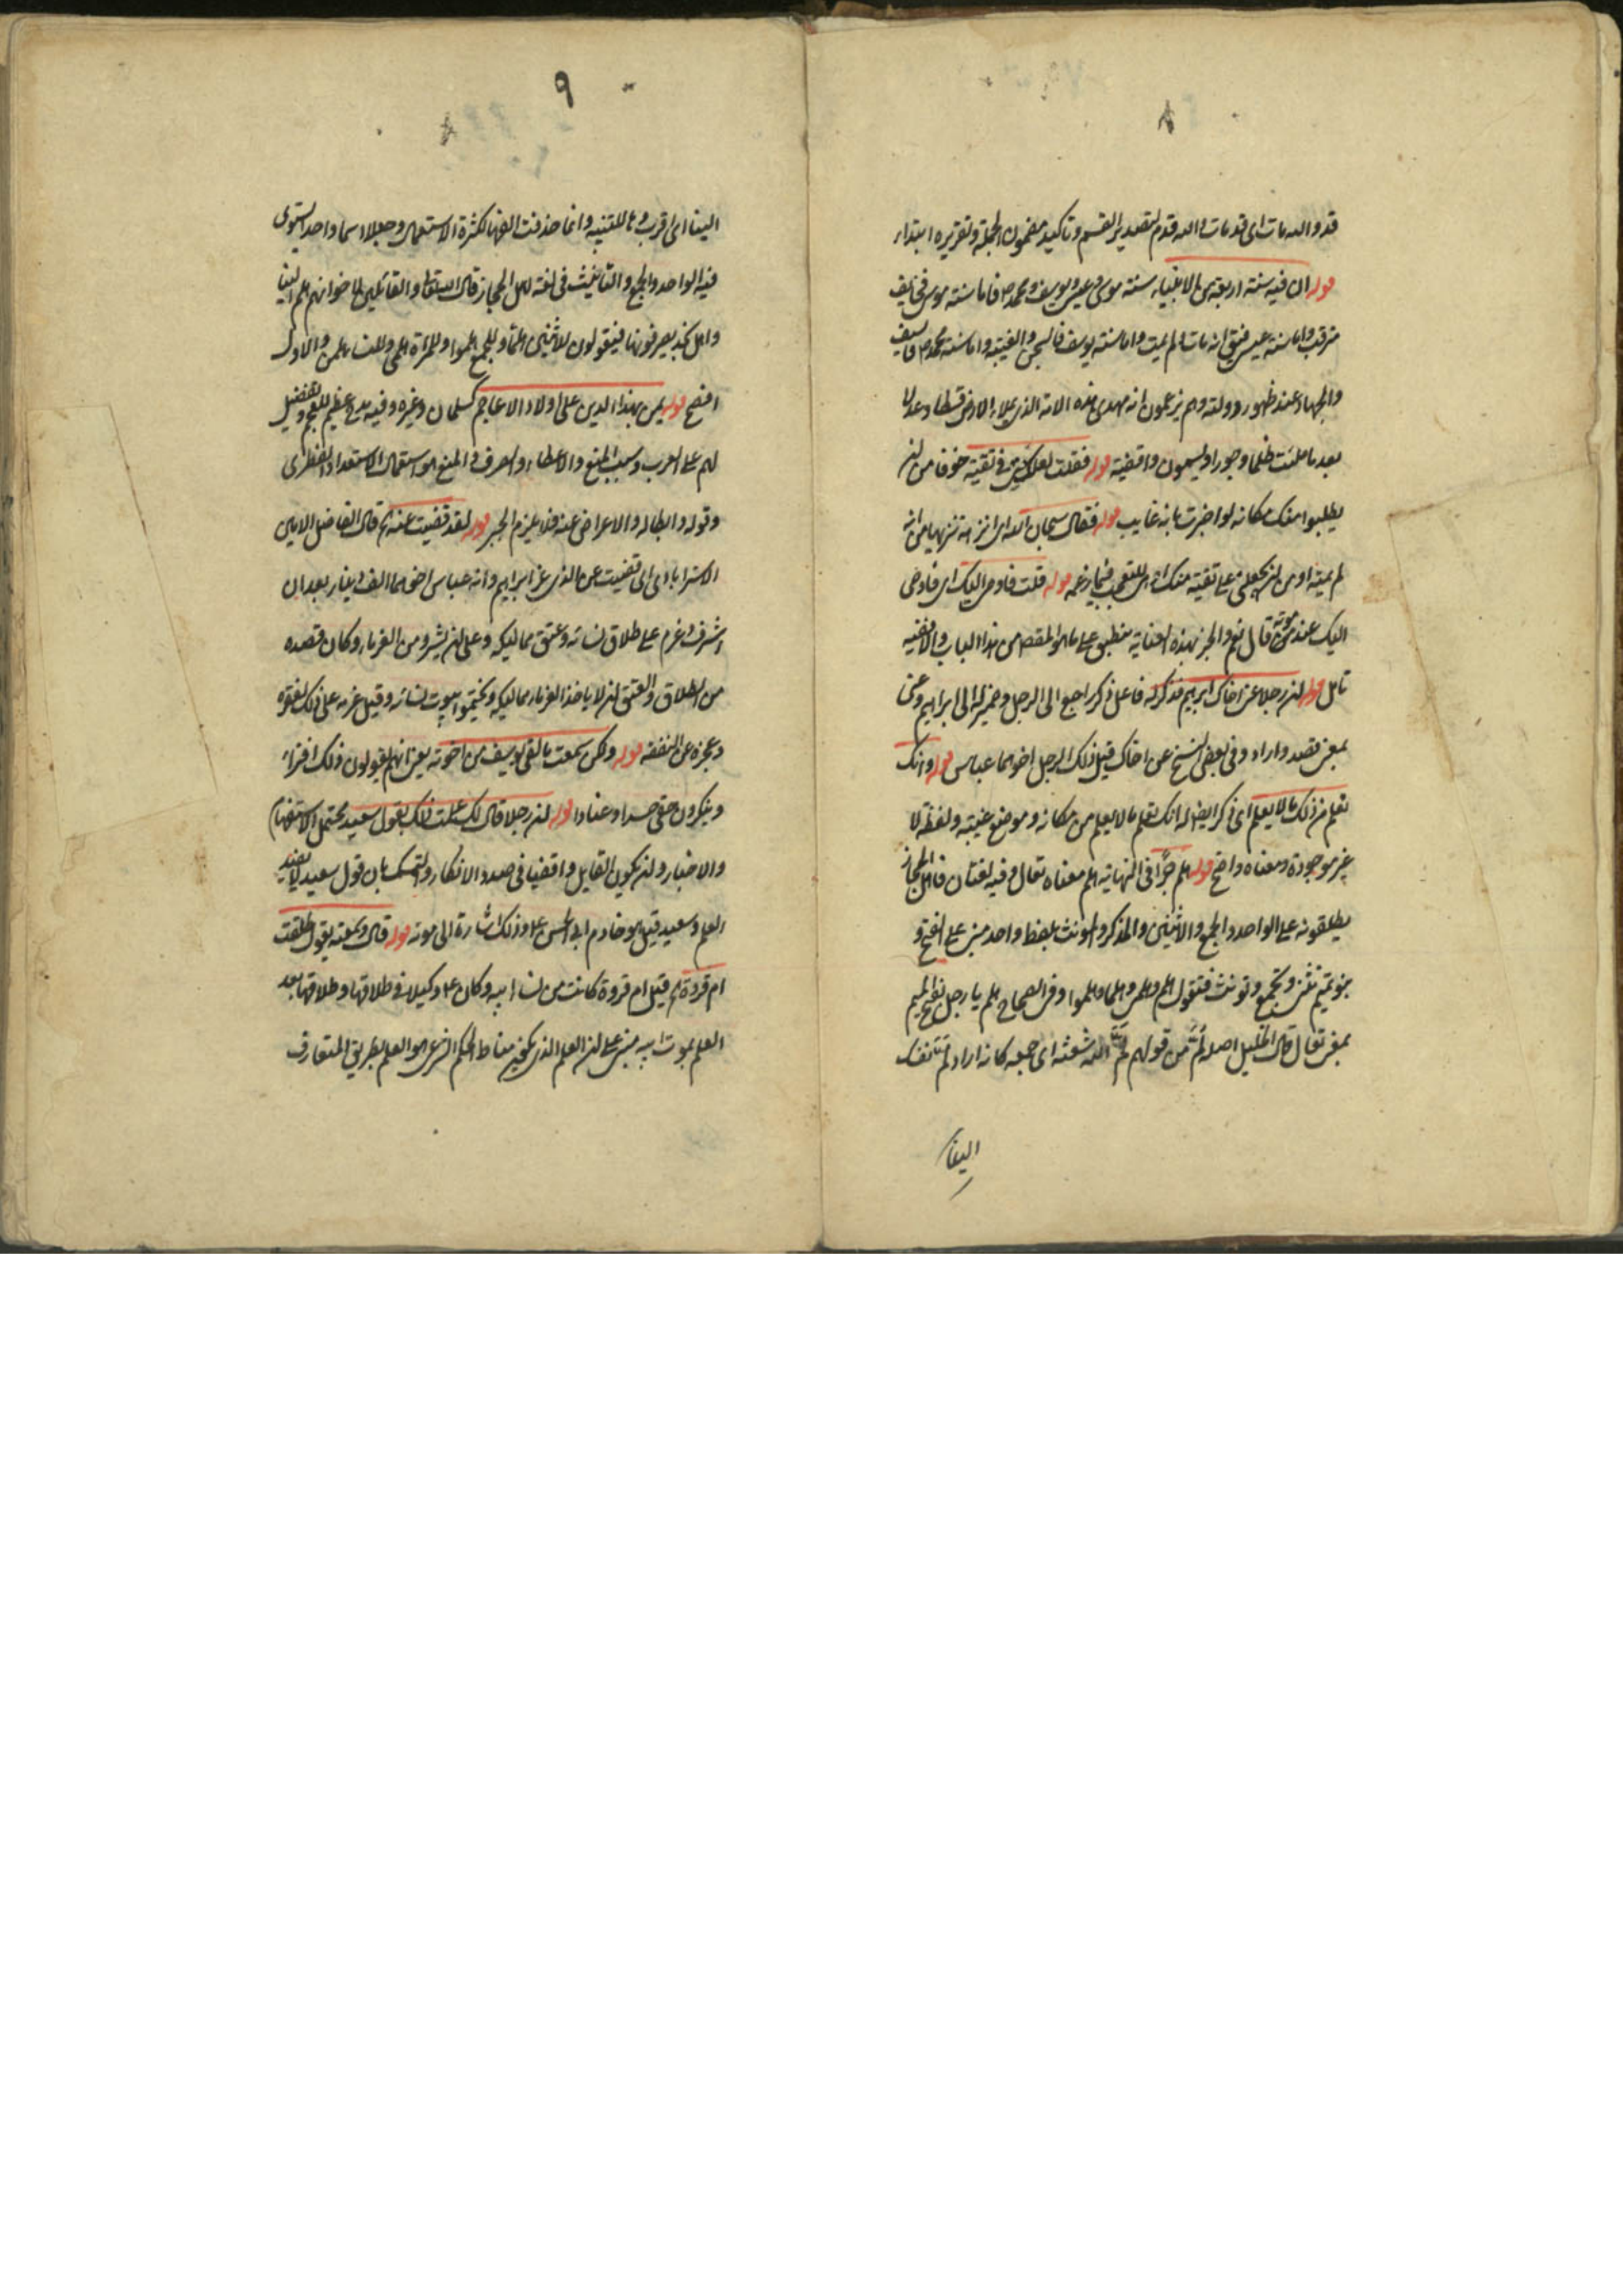 قد والله مات اى قد مات والله قدم لتصدير القسم وتأكيد مضمون الجملة وتقريره ابتداء
قوله ان فيه سنة اربعة من الانبياء سنة موسى وعيسى ويوسف ومحمد ص فاما سنة موسى فخايف
مترقب واما سنة عيسى فيقال انه مات ولم يمت واما سنة يوسف فالسجن والغيبة واما سنة محمد ص فالسيف
والجهاد عند ظهور دولته وهم يزعمون انه مهدى هذه الامة الذى يملاء الارض قسطا وعدلا
بعد ما ملئت ظلما وجورا ويسمون واقفية قوله فقلت لعلك منى فى تقية خوفا من ان
يطلبوا منك مكانه لو اخبرت بانه غايب قوله فقال سبحان الله اى انزهه تنزيها من انه
لم يمته او من ان يجعلنى على تقية منك او للتعجب فيما زعمه قوله قلت فاوصى اليك اى فاوصى
اليك عند موته قال نعم والخبر بهذه العناية منطبق على ما هو المقصد من هذا الباب والاففيه
تامل قوله ان رجلا عن اخاك ابرهيم فذكر له فاعل ذكر راجع الى الرجل وضمير له الى ابراهيم وعنى
بمعنى قصد واراد وفى بعض النسخ عن اخاك قيل ذلك الرجل اخوهما عباس قوله وانك
تعلم من ذلك ما لا يعلم اى ذكر ايضا له انك تعلم ما لا يعلم من مكانه وموضع غيبته ولفظة لا
غير موجودة ومعناه واضح قوله هلم جرا فى النهاية هلم معناه تعال وفيه لغتان فاهل الحجاز
يطلقونه على الواحد والجمع والاثنين والمذكر والمونث بلفظ واحد مبنى على الفتح و
بنو تميم تثنى وتجمع وتونث فتقول هلم وهلمى وهلما وهلموا وفى الصحاح هلم يا رجل بفتح الميم
بمعنى تعال قال الخليل اصله لم من قولهم لم الله شعثه اى جمعه كانه اراد لم نفسك
الينا
الينا اى اقرب وها للتنبيه وانما حذفت الفها لكثرة الاستعمال وجعلا اسما واحدا يستوى
فيه الواحد والجمع والتانيث فى لغة اهل الحجاز قال الله تعالى والقائلين لاخوانهم هلم الينا
واهل نجد يصرفونها فيقولون للاثنين هلما وللجمع هلموا وللمرأة هلمى وللنساء هلممن والاول
افصح قوله يمن بهذا الدين على اولاد الاعاجم كسلمان وغيره وفيه مدح عظيم للعجم وتفضيل
لهم على العرب وسبب المنع والاعطاء والصرف والمنع هو استعمال الاستعداد الفطرى
وقوله وابطاله والاعراض عنه فلا يلزم الجبر قوله لقد قضيت عنه الخ قال الفاضل الامين
الاسترابادى اى قضيت عن الذى عزا ابراهيم وانه عباس اخوهما الف دينار بعد ان
اشرف وعزم على طلاق نسائه وعتق مماليكه وعلى ان يشرد من الغرماء وكان قصده
من الطلاق والعتق ان لا ياخذ الغرماء مماليكه ويختموا بيوت نسائه وقيل عزمه على ذلك لفقره
وعجزه عن النفقة قوله ولكن سمعت ما لقى يوسف من اخوته يعنى انهم يقولون ذلك افتراء
وينكرون حقى حسدا وعنادا قوله ان رجلا قال لك علمت ذلك بقول سعيد يحتمل الاستفهام
والاخبار وان يكون القايل واقفيا فى صدد الانكار والتمسك بان قول سعيد لا يفيد
العلم وسعيد قيل هو خادم ابى الحسن ع وذلك اشارة الى موته قوله قال وسمعته يقول طلقت
ام فروة الخ قيل ام فروة كانت من نساء ابيه وكان ع وكيلا فى طلاقها وطلاقها بعد
العلم بموت ابيه مبنى على ان العلم الذى يكون مناط الحكم الشرعى هو العلم بطريق المتعارف